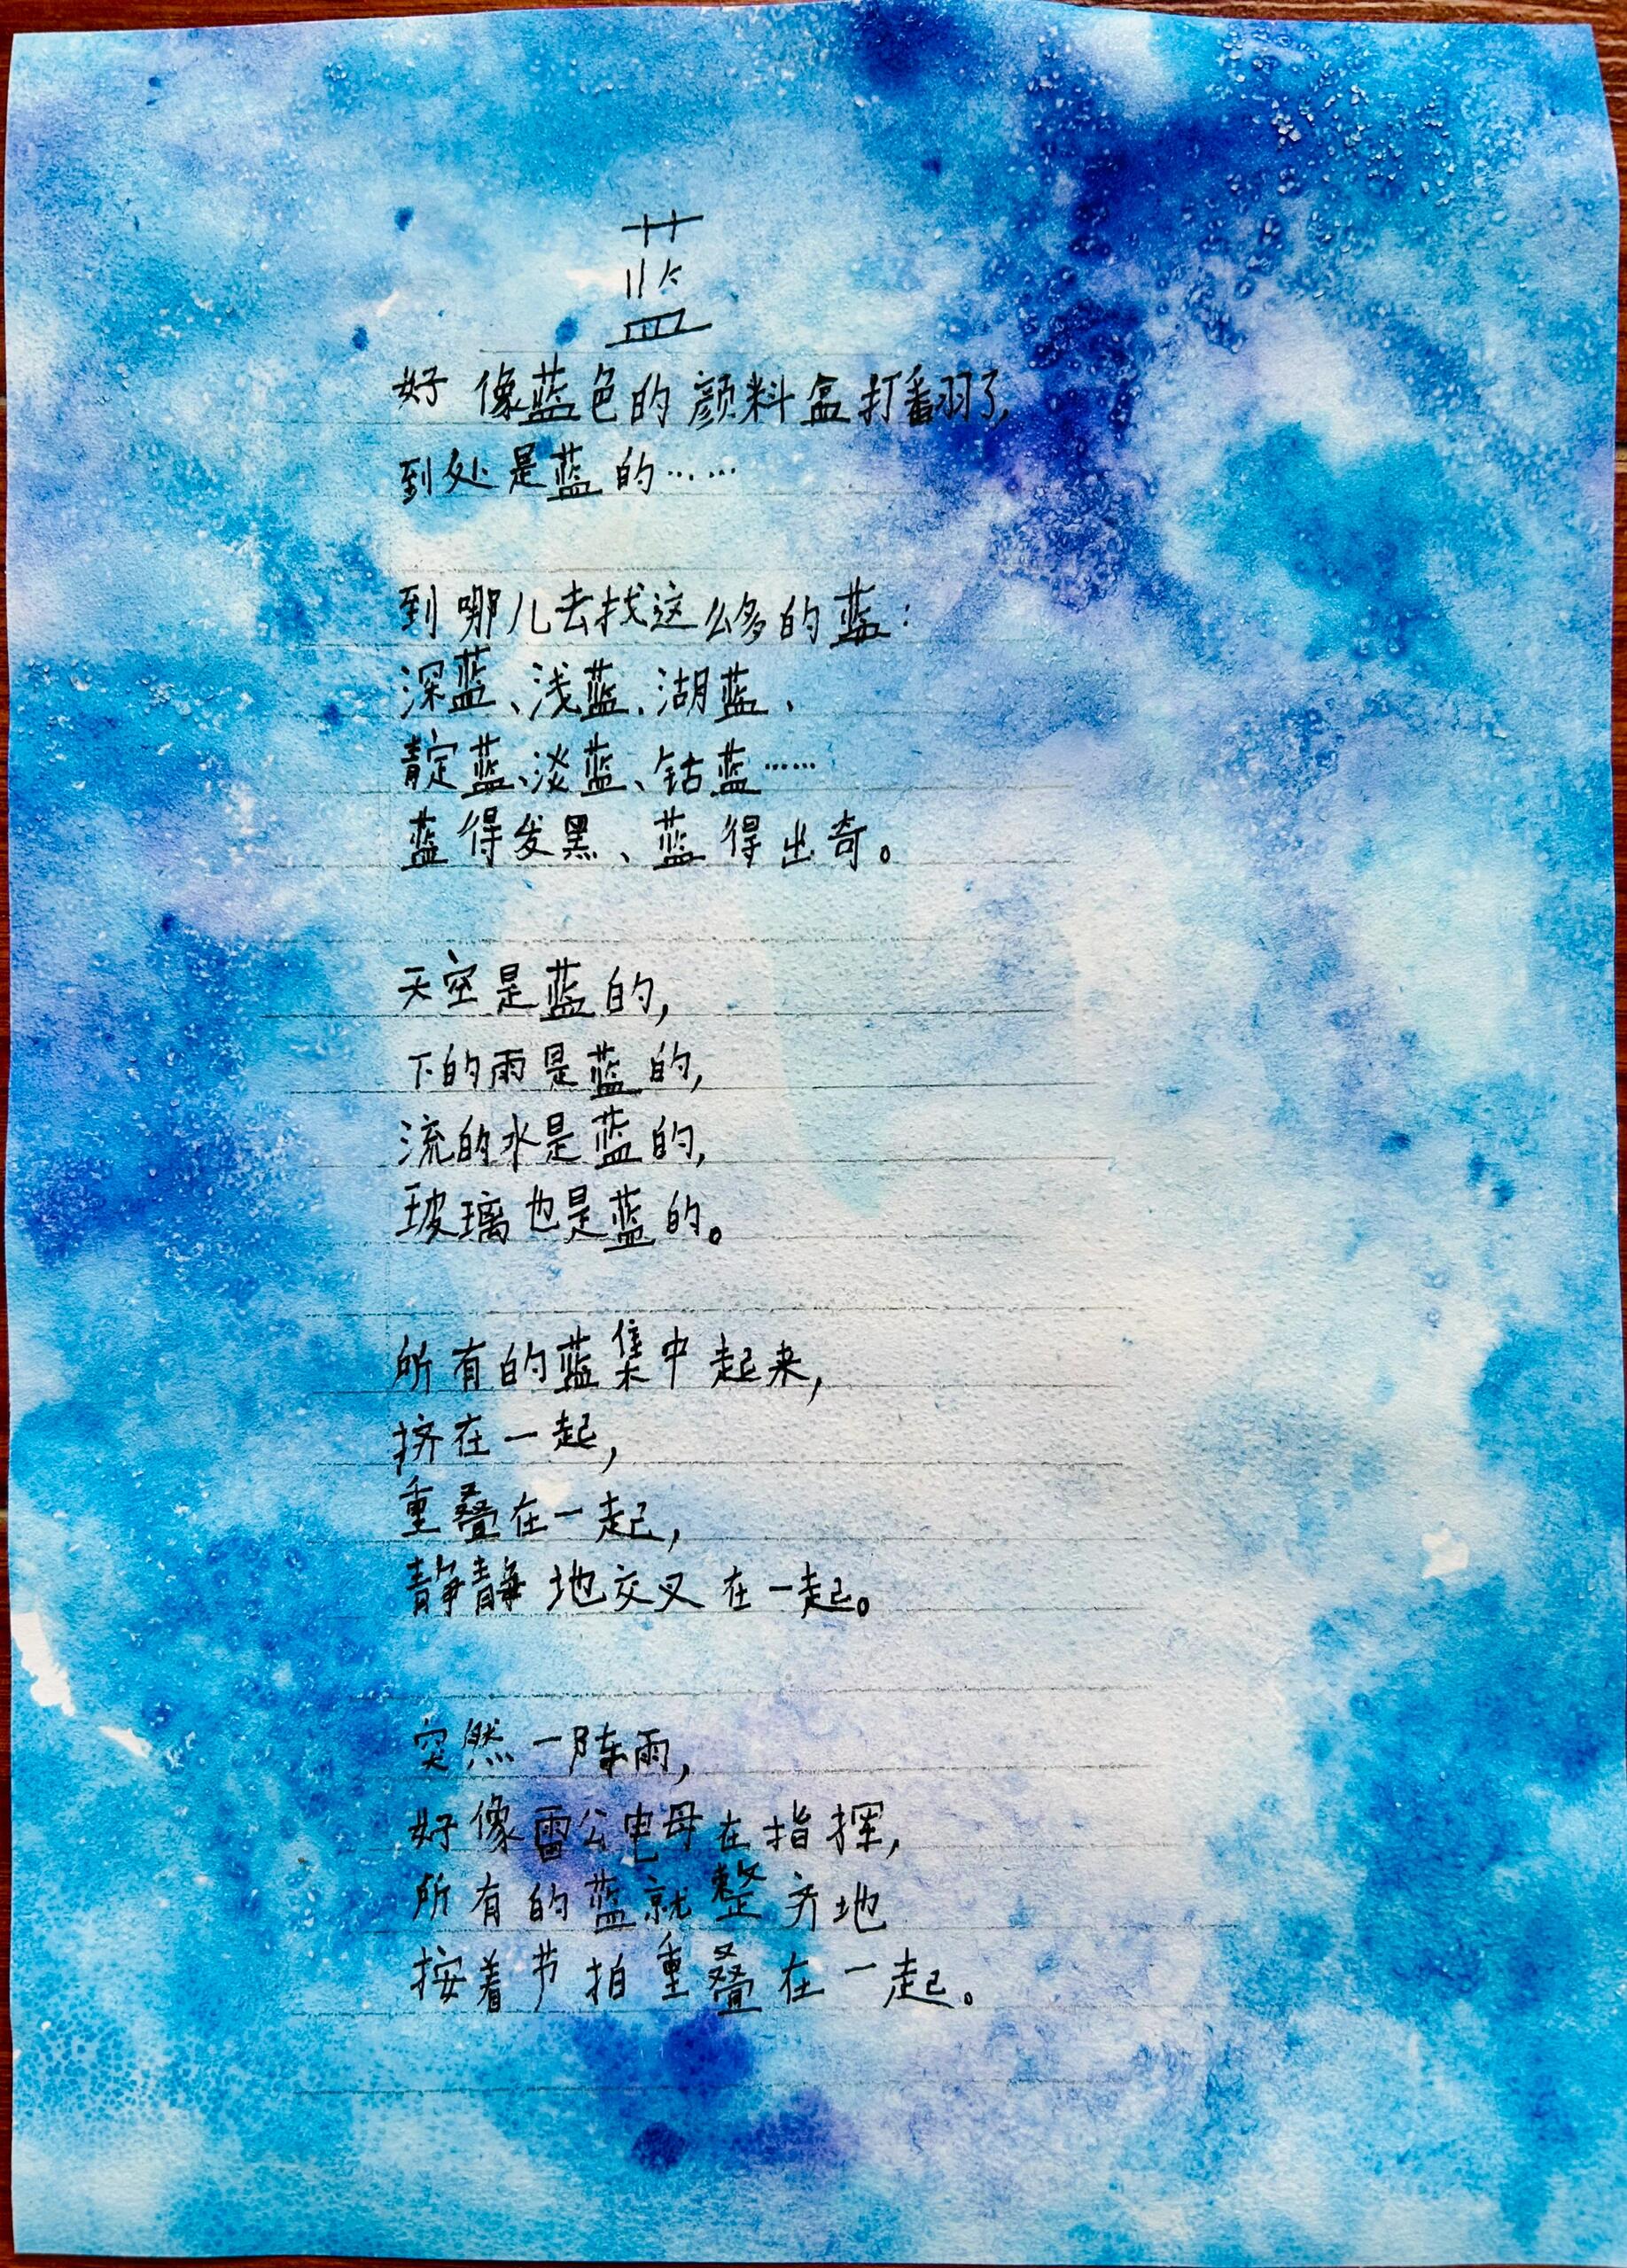 蓝
好像蓝色的颜料盒打翻了,
到处是蓝的……
到哪儿去找这么多的蓝：
深蓝、浅蓝、湖蓝、
靛蓝、淡蓝、钴蓝……
蓝得发黑、蓝得出奇。
天空是蓝的,
下的雨是蓝的,
流的水是蓝的,
玻璃也是蓝的。
所有的蓝集中起来,
挤在一起,
重叠在一起,
静静地交叉在一起。
突然一阵雨,
好像雷公电母在指挥,
所有的蓝就整齐地
按着节拍重叠在一起。